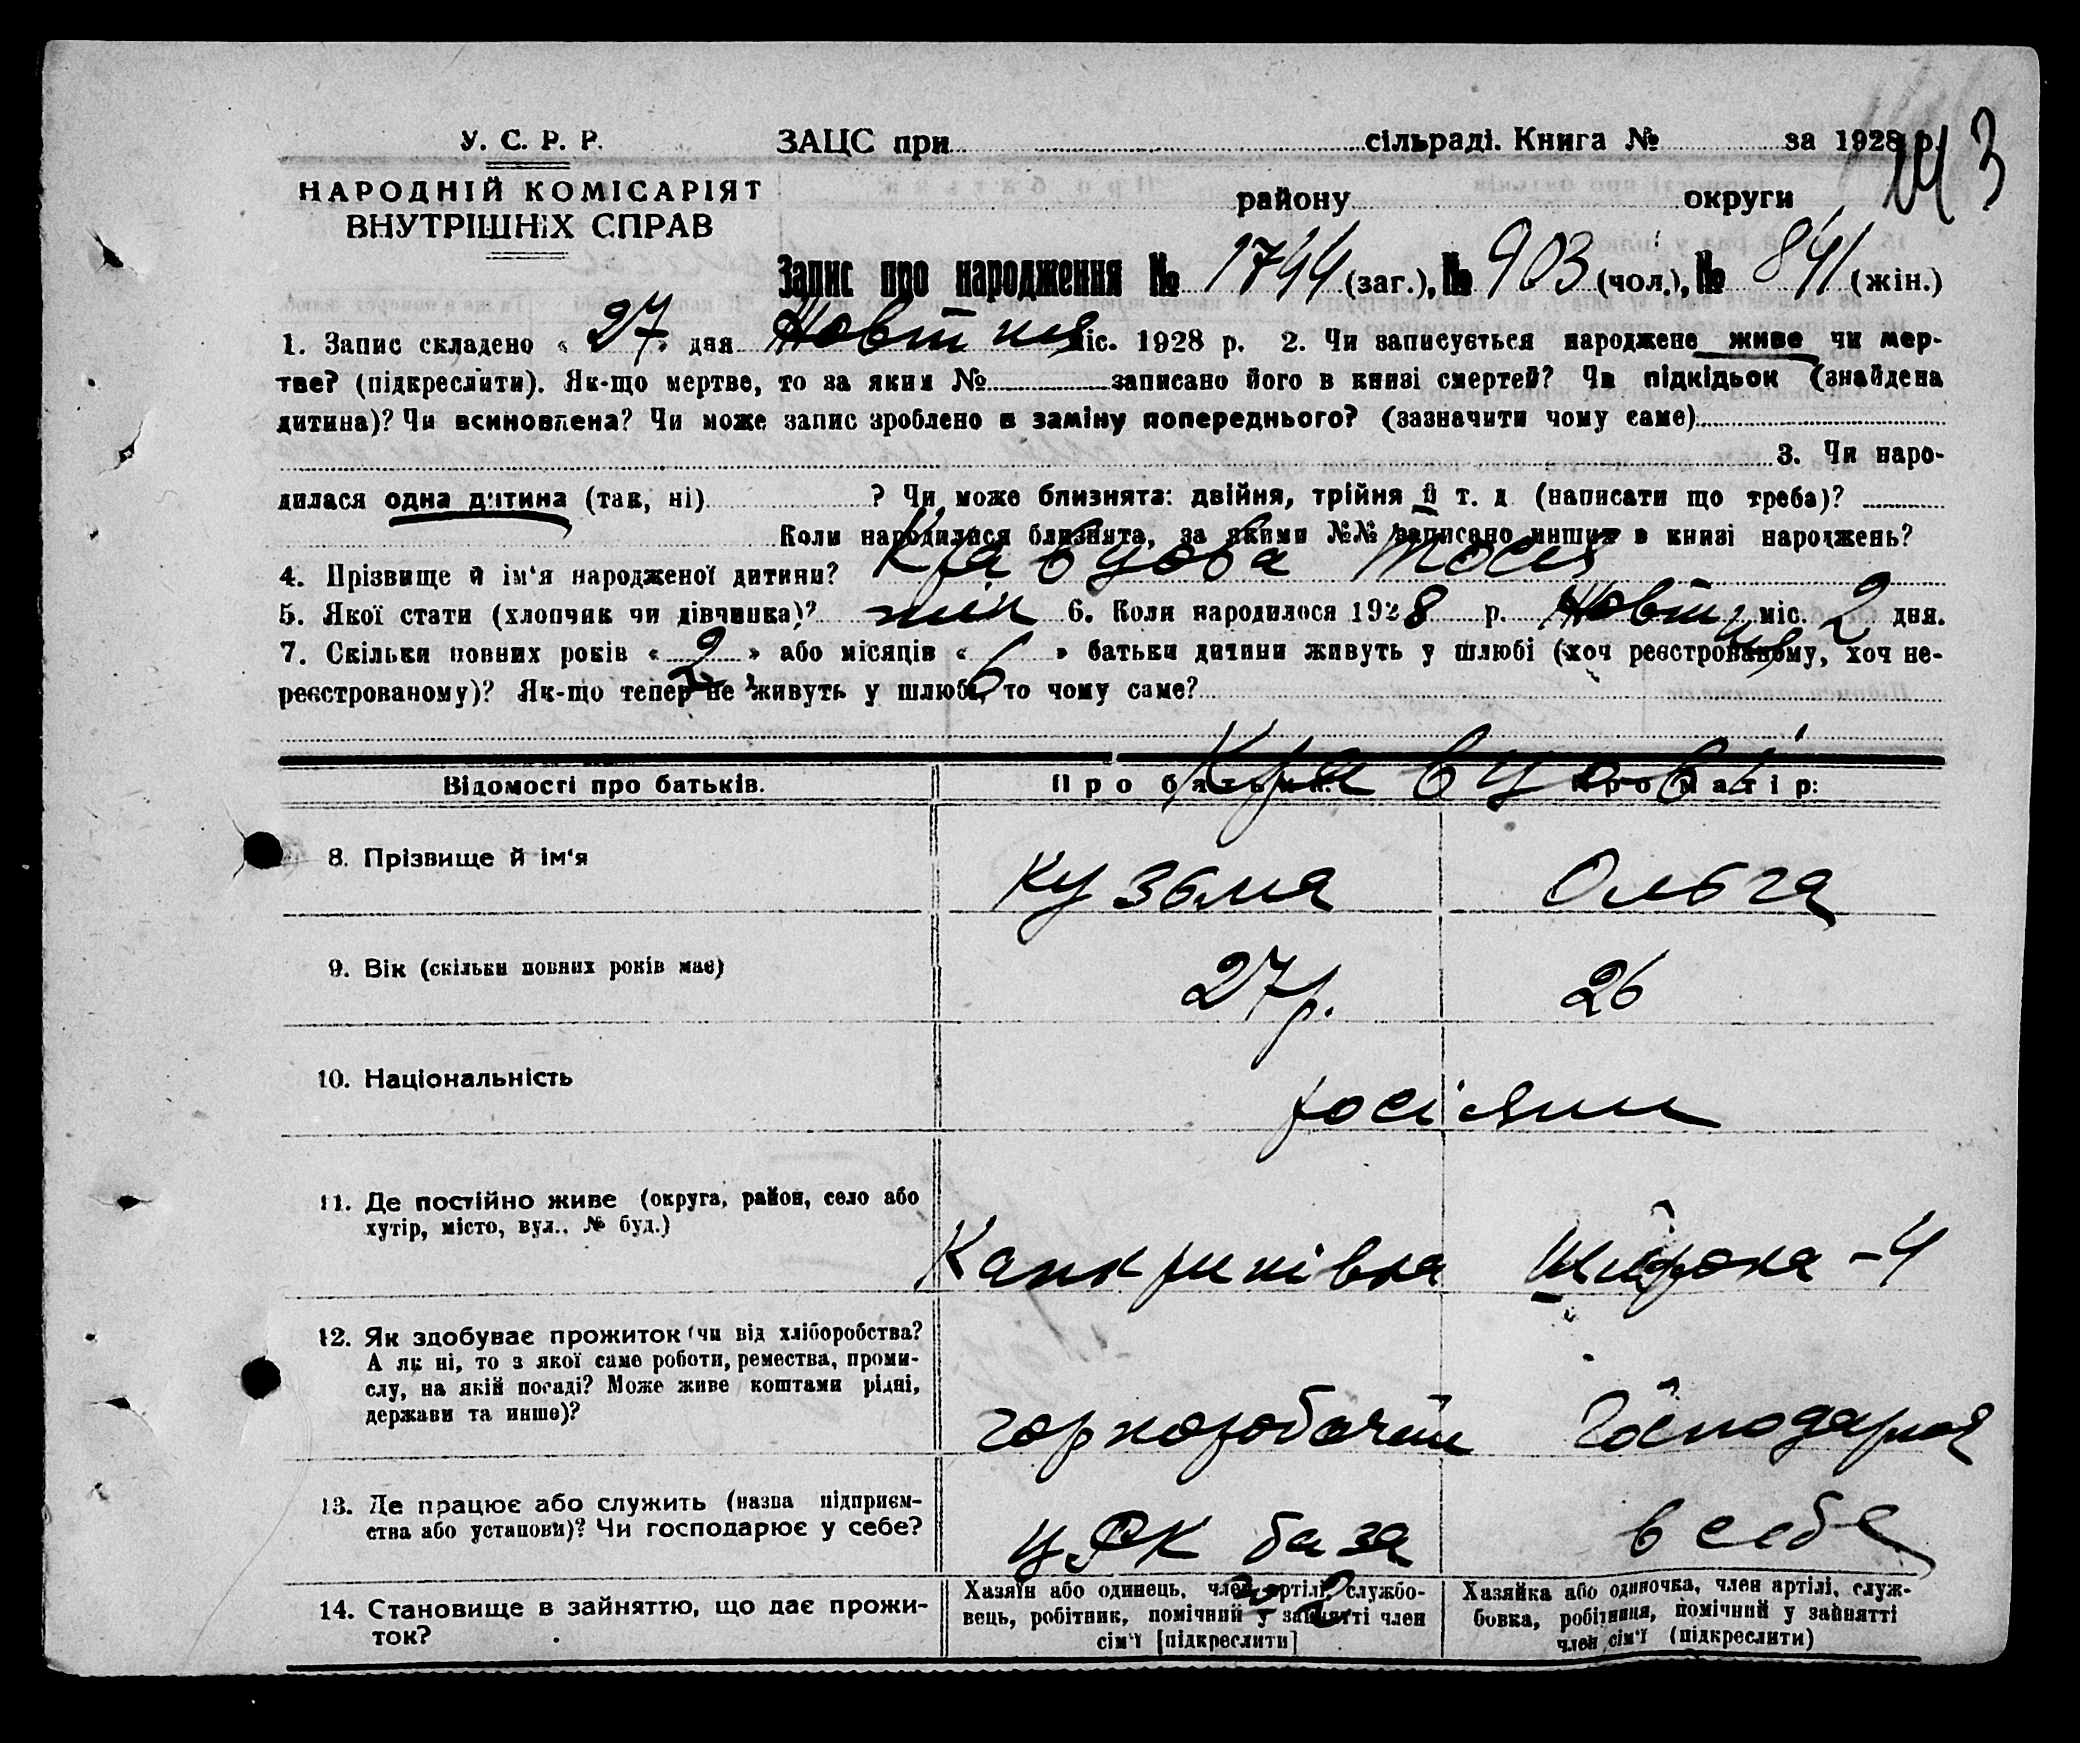 143
У. С. Р. Р.
НАРОДНІЙ КОМІСАРІЯТ
ВНУТРІШНІХ СПРАВ
ЗАЦС при сільраді. Книга № за 1928 р.
району округи
Запис про народження № 1744 (заг.), № 903 (чол.), № 841 (жін.)
1. Запис складено « 27 » дня Жовтня міс. 1928 р. 2. Чи записується народжене живе чи мер-
тве? (підкреслити). Як-що мертве, то за яким № записано його в книзі смертей? Чи підкідьок (знайдена
дитина)? Чи всиновлена? Чи може запис зроблено в заміну попереднього? (зазначити чому саме)
3. Чи наро-
дилася одна дитина (так, ні) ? Чи може близнята: двійня, трійня й т. д. (написати що треба)?
Коли народилися близнята, за якими №№ записано инших в книзі народжень?
4. Прізвище й ім‘я народженої дитини? Кравцова Тося
5. Якої стати (хлопчик чи дівчинка)? жін 6. Коли народилося 1928 р. Жовтня міс. 2 дня.
7. Скільки повних років « 2 » або місяців « 6 » батьки дитини живуть у шлюбі (хоч реєстрованому, хоч не-
реєстрованому)? Як-що тепер не живуть у шлюбі, то чому саме?
Відомості про батьків. Про батька: Про матір:
Кравцови
8. Прізвище й ім‘я Кузьма Ольга
9. Вік (скільки повних років має) 27р. 26
10. Національність росіяни
11. Де постійно живе (округа, район, село або
хутір, місто, вул., № буд.)
Канкринівка Широка - 4
12. Як здобуває прожиток (чи від хліборобства?
А як ні, то з якої саме роботи, ремества, проми-
слу, на якій посаді? Може живе коштами рідні,
держави та инше)?
горноробочий Господарка
13. Де працює або служить (назва підприєм-
ства або установи)? Чи господарює у себе?
ЦРК база в себе
14. Становище в зайняттю, що дає прожи-
ток?
Хазяїн або одинець, член артілі, службо-
вець, робітник, помічний у зайнятті член
сім‘ї [підкреслити]
Хазяйка або одиночка, член артілі, служ-
бовка, робітниця, помічний у зайнятті
член сім‘ї (підкреслити)